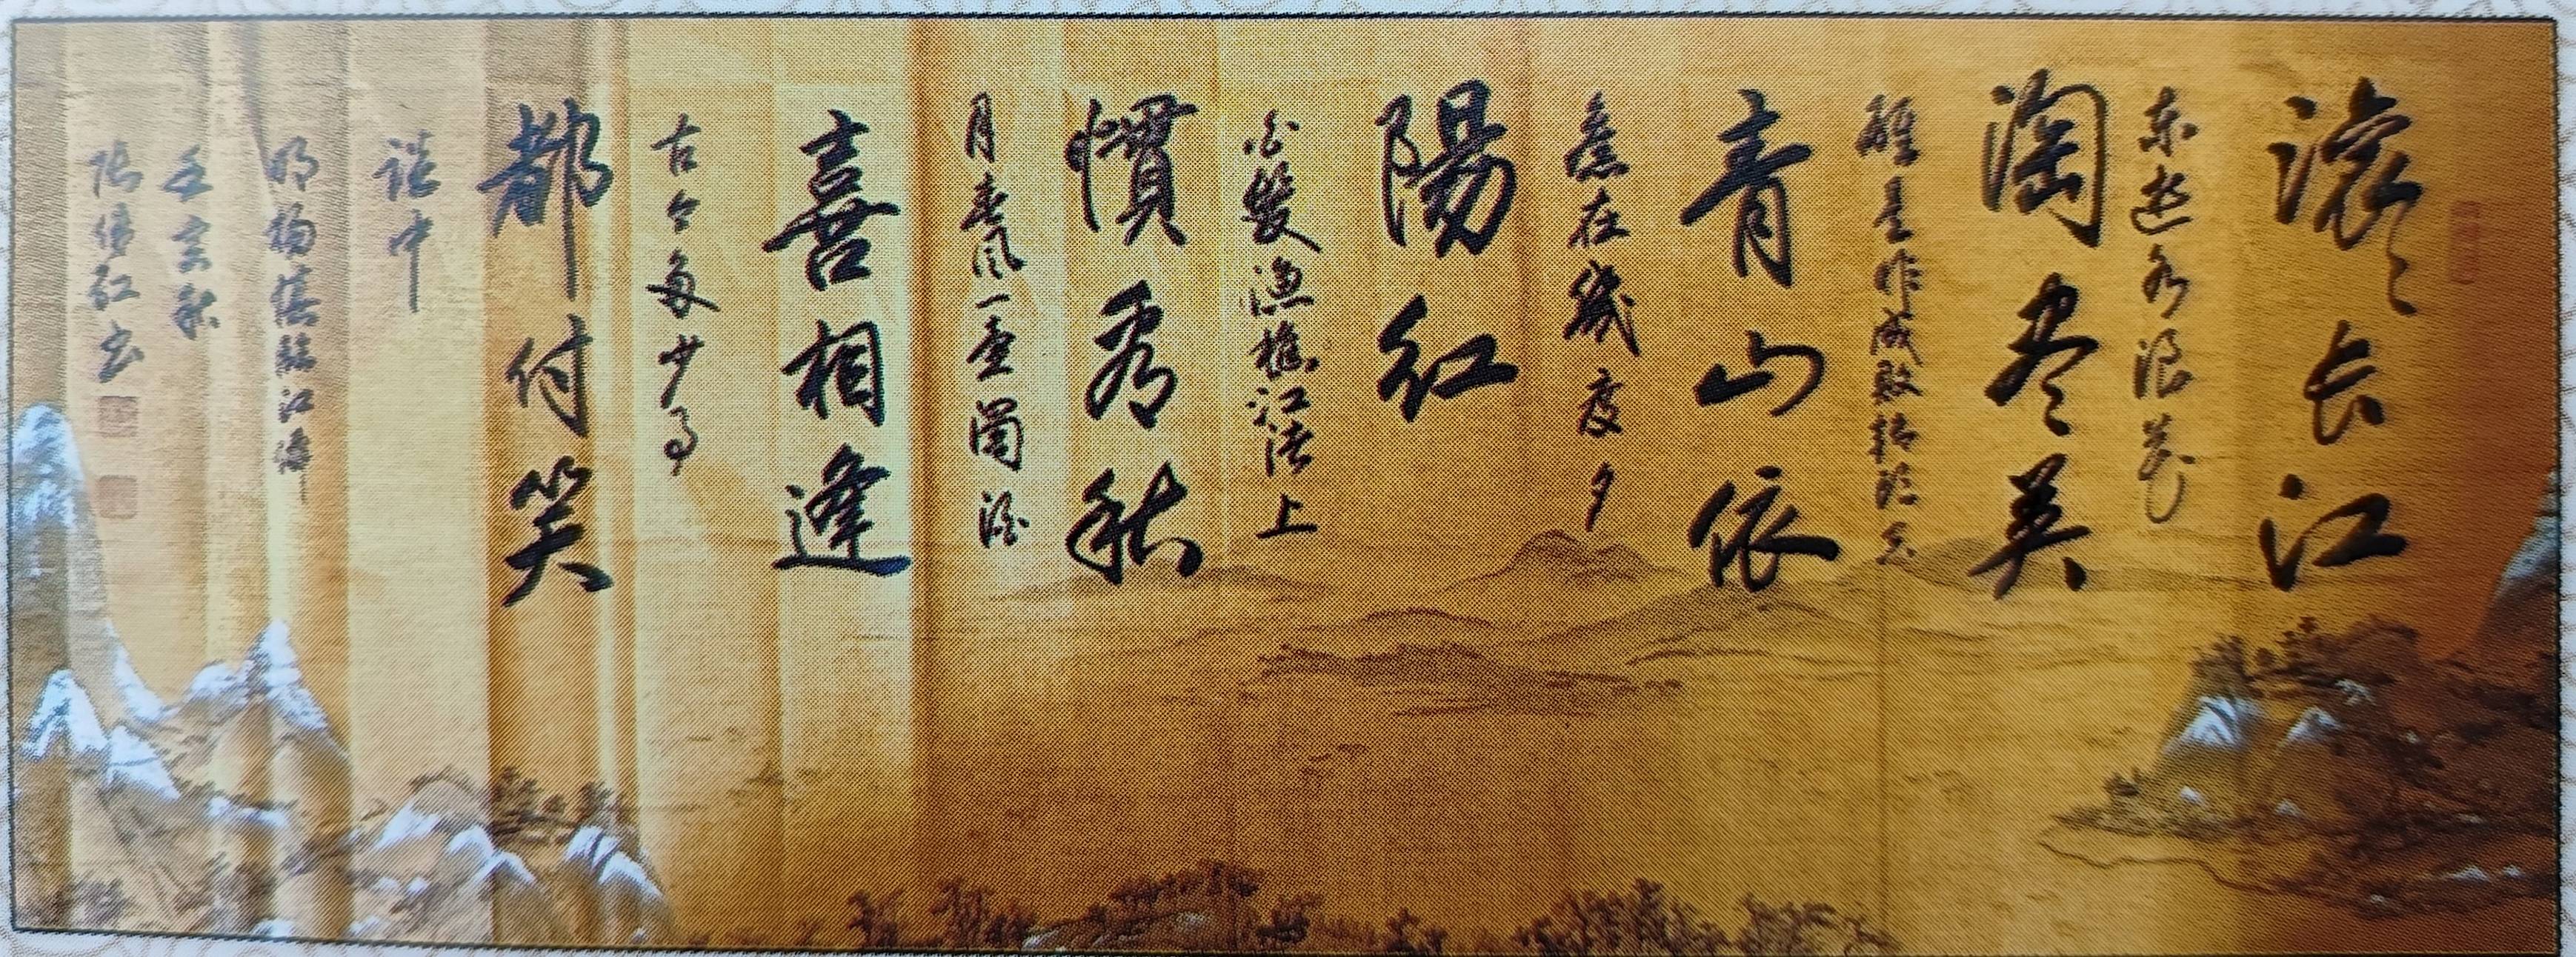 滚々长江
东逝水浪花
淘尽英
雄是非成敗转头空
青山依
舊在幾度夕
陽红
白髮渔樵江渚上
慣看秋
月春风一壶濁酒
喜相逢
古今多少事
都付笑
谈中
明杨慎临江仙
壬寅秋
红书